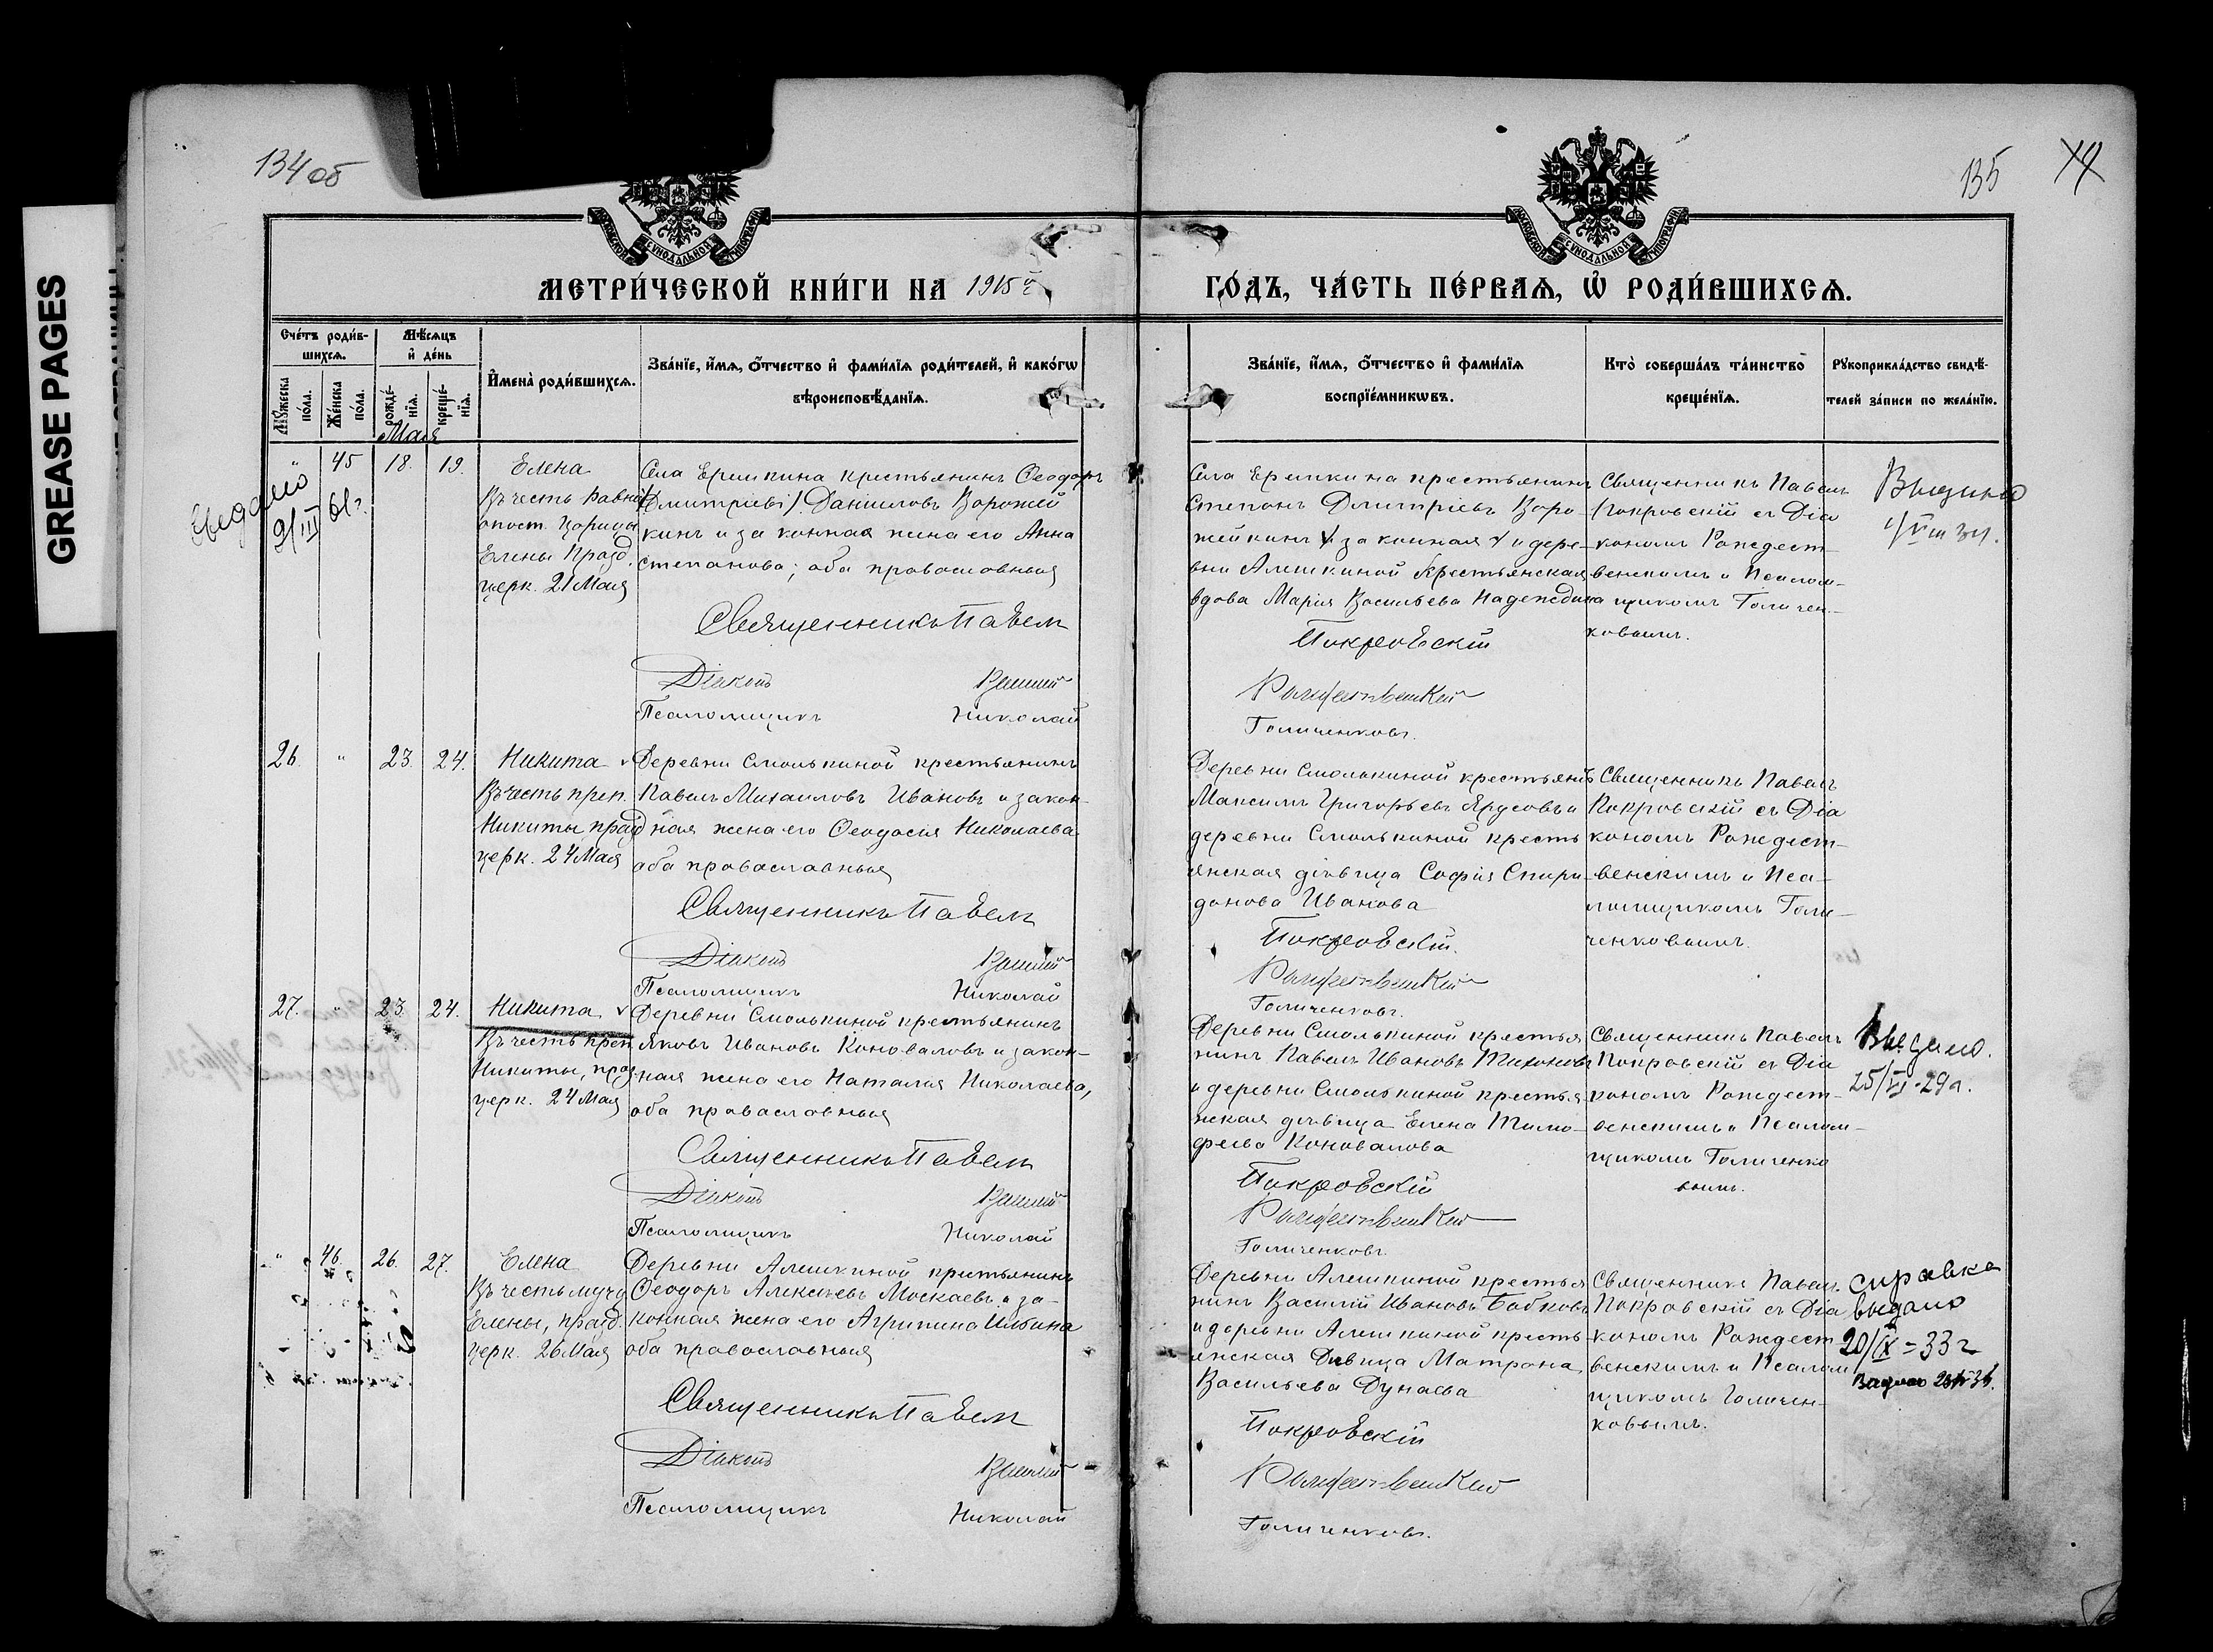 GREASE PAGES
134 об
135
МЕТРИ́ЧЕСКОЙ КНИ́ГИ НА 1915
ГО́ДЪ, ЧА́СТЬ ПЕ́РВАѦ, Ѡ҆ РОДИ́ВШИХСѦ.
Сче́тъ роди́в-
шихсѧ.
Мѣ́сѧцъ
и҆ де́нь
Мꙋ́жеска
по́ла.
Же́нска
по́ла.
рожде́-
нїѧ.
креще́-
нїѧ.
И҆мена̀ роди́вшихсѧ.
Зва́нїе, и҆́мѧ, ѻ҆́тчество и҆ фами́лїѧ роди́телей, и҆ како́гѡ
вѣроисповѣ́данїѧ.
Зва́нїе, и҆́мѧ, ѻ҆́тчество и҆ фами́лїѧ
воспрїе́мникѡвъ.
Кто̀ соверша́лъ та́инство
креще́нїѧ.
Рꙋкоприкла́дство свидѣ́-
телей за́писи по жела́нїю.
Мая
Выдано
2/III 61 г.
" 45 18. 19.
Елена
Въ честь Равно
апост. Царицы
Елены Празд.
церк. 21 Мая
Села Ерешкина крестьянинъ Ѳеодоръ
(Дмитріевъ) Даниловъ Ворожей
кинъ и законная жена его Анна
Степанова; оба православныя
Священникъ Павелъ
Діаконъ
Псаломщикъ Николай
Села Ерешкина крестьянинъ
Степанъ Дмитріевъ Воро
жейкинъ и законная и дере-
вни Алешкиной Крестьянская
вдова Марія Васильева Надеждина
Покровскій
Рождественскій
Голиченковъ.
Священникъ Павелъ
Покровскій съ Діа
кономъ Рождест
венскимъ и Псалом-
щикомъ Голичен-
ковымъ.
Выдано
26. " 23. 24.
Никита
Въ честь преп.
Никиты празд
церк. 24 Мая
Деревни Смолькиной крестьянинъ
Павелъ Михаиловъ Ивановъ и закон-
ная жена его Ѳеодосія Николаева
оба православныя
Священникъ Павелъ
Діаконъ
Псаломщикъ Николай
Деревни Смолькиной крестьянинъ
Максимъ Григорьевъ Ярусовъ и
деревни Смолькиной кресть
янская дѣвица Софія Спири
донова Иванова
Покровскій.
Рождественскій
Голиченковъ.
Священникъ Павелъ
Покровскій съ Діа
кономъ Рождест-
венскимъ и Пса-
ломщикомъ Голи-
ченковымъ.
27. " 23. 24.
Никита
Въ честь преп
Никиты, праз.
церк. 24 Мая
Деревни Смолькиной крестьянинъ
Яковъ Ивановъ Коноваловъ и закон-
ная жена его Наталія Николаева,
оба православныя
Священникъ Павелъ
Діаконъ
Псаломщикъ Николай
Деревни Смолькиной крестья
нинъ Павелъ Ивановъ Тихоновъ
и деревни Смолькиной крестья-
нская дѣвица Елена Тимо-
феева Коновалова
Покровскій
Рождественскій
Голиченковъ.
Священникъ Павелъ
Покровскій съ Діа
кономъ Рождест-
венскимъ и Псалом-
щикомъ Голиченко
вымъ.
Выдано.
25/VI-29 г.
" 46. 26. 27.
Елена
Въ честь мучу
Елены, празд.
церк. 26 Мая
Деревни Алешкиной крестьянинъ
Ѳеодоръ Алексѣевъ Москаевъ и за-
конная жена его Агрипина Ильина
оба православныя
Священникъ Павелъ
Діаконъ
Псаломщикъ Николай
Деревни Алешкиной крестья
нинъ Василій Ивановъ Бобковъ
и деревни Алешкиной кресть-
янская Дѣвица Матрона
Васильева Дунаева
Покровскій
Рождественскій
Голиченковъ.
Священникъ Павелъ
Покровскій съ Діа
кономъ Рождест
венскимъ и Псалом
щикомъ Голичен-
ковымъ.
справка
выдана
20/IX-33 г